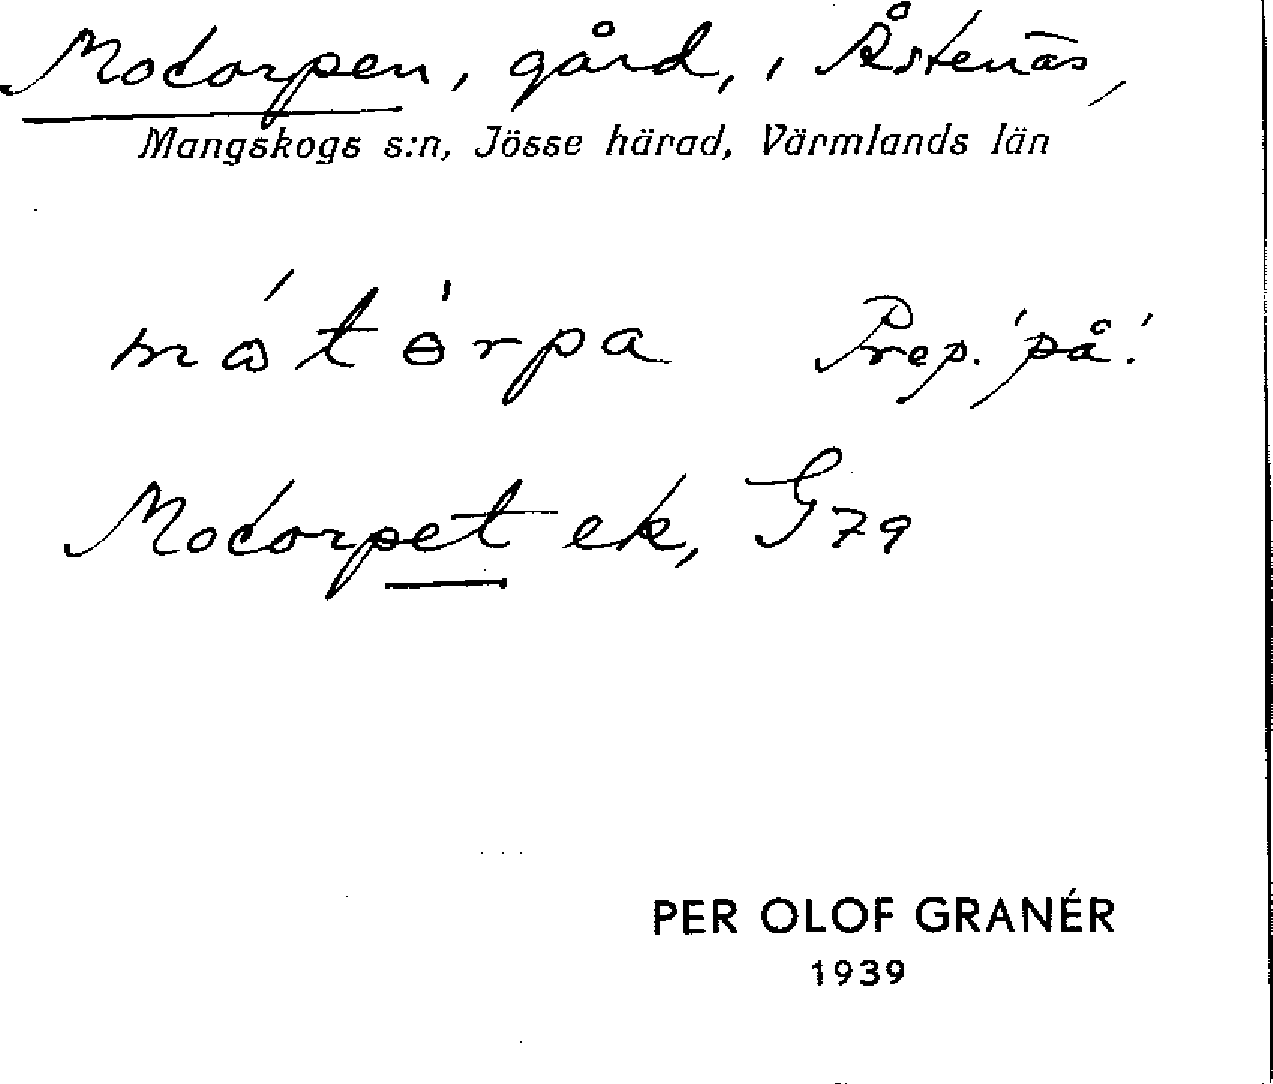 Motorpen, gård, i Åstenäs,
Mangskogs s:n, Jösse härad, Värmlands län
Prep. 'på'.
Motorpet ek, G79
PER OLOF GRANÉR
1939